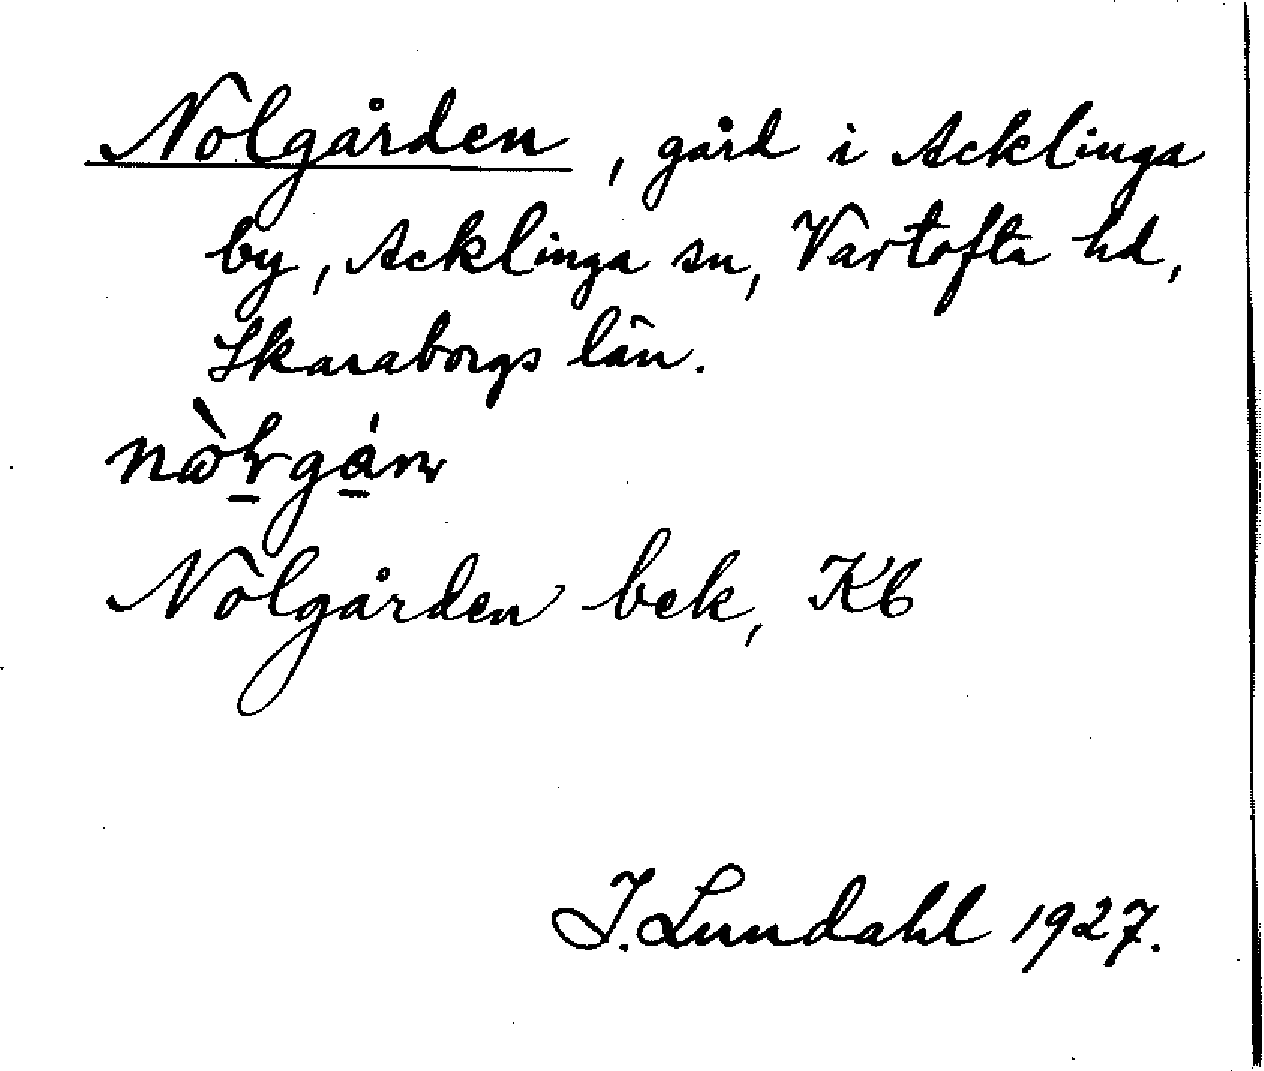 Nolgården, gård i Acklinga
by, Acklinga sn, Vartofta hd,
Skaraborgs län.
Nolgården bek, Kb
I. Lundahl 1927.